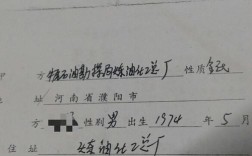 方 石油勘探局炼油化工总厂 性质
址 河南省濮阳市
方 性别 男 出生 1974 年 5 月
住 址 炼油化工总厂